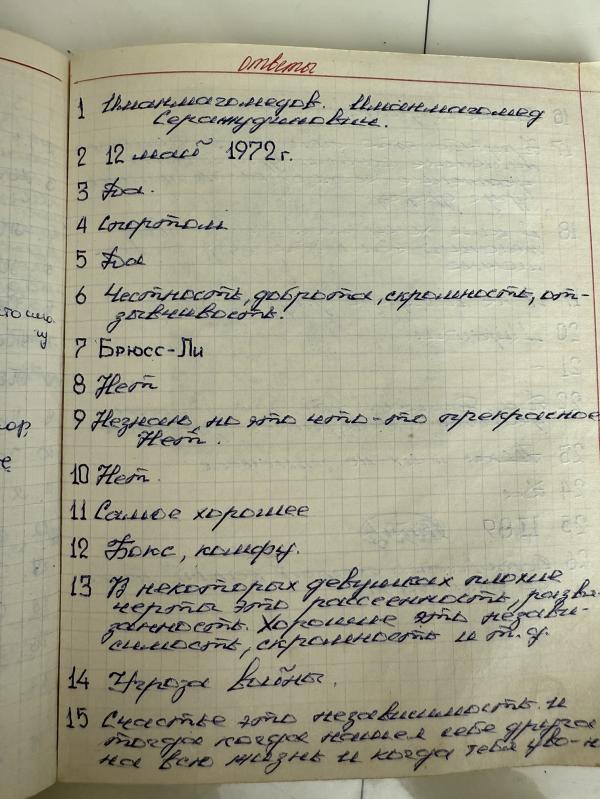 ответы
1 Иманмагомедов. Иманмагомед
Серажудинович.
2 12 май 1972 г.
3 Да.
4 Спортом
5 Да
6 Честность, доброта, скромность, от-
зывчивость.
7 Брюсс-Ли
8 Нет
9 Незнаю, но это что-то прекрасное
Нет.
10 Нет.
11 Самое хорошее
12 Бокс, комфу.
13 В некоторых девушках плохие
черты это рассеенность, развя-
занность. Хорошие это незави-
симость, скромность и т.д.
14 Угроза войны.
15 Счастье это независимость и
тогда когда нашел себе друга
на всю жизнь и когда тебя